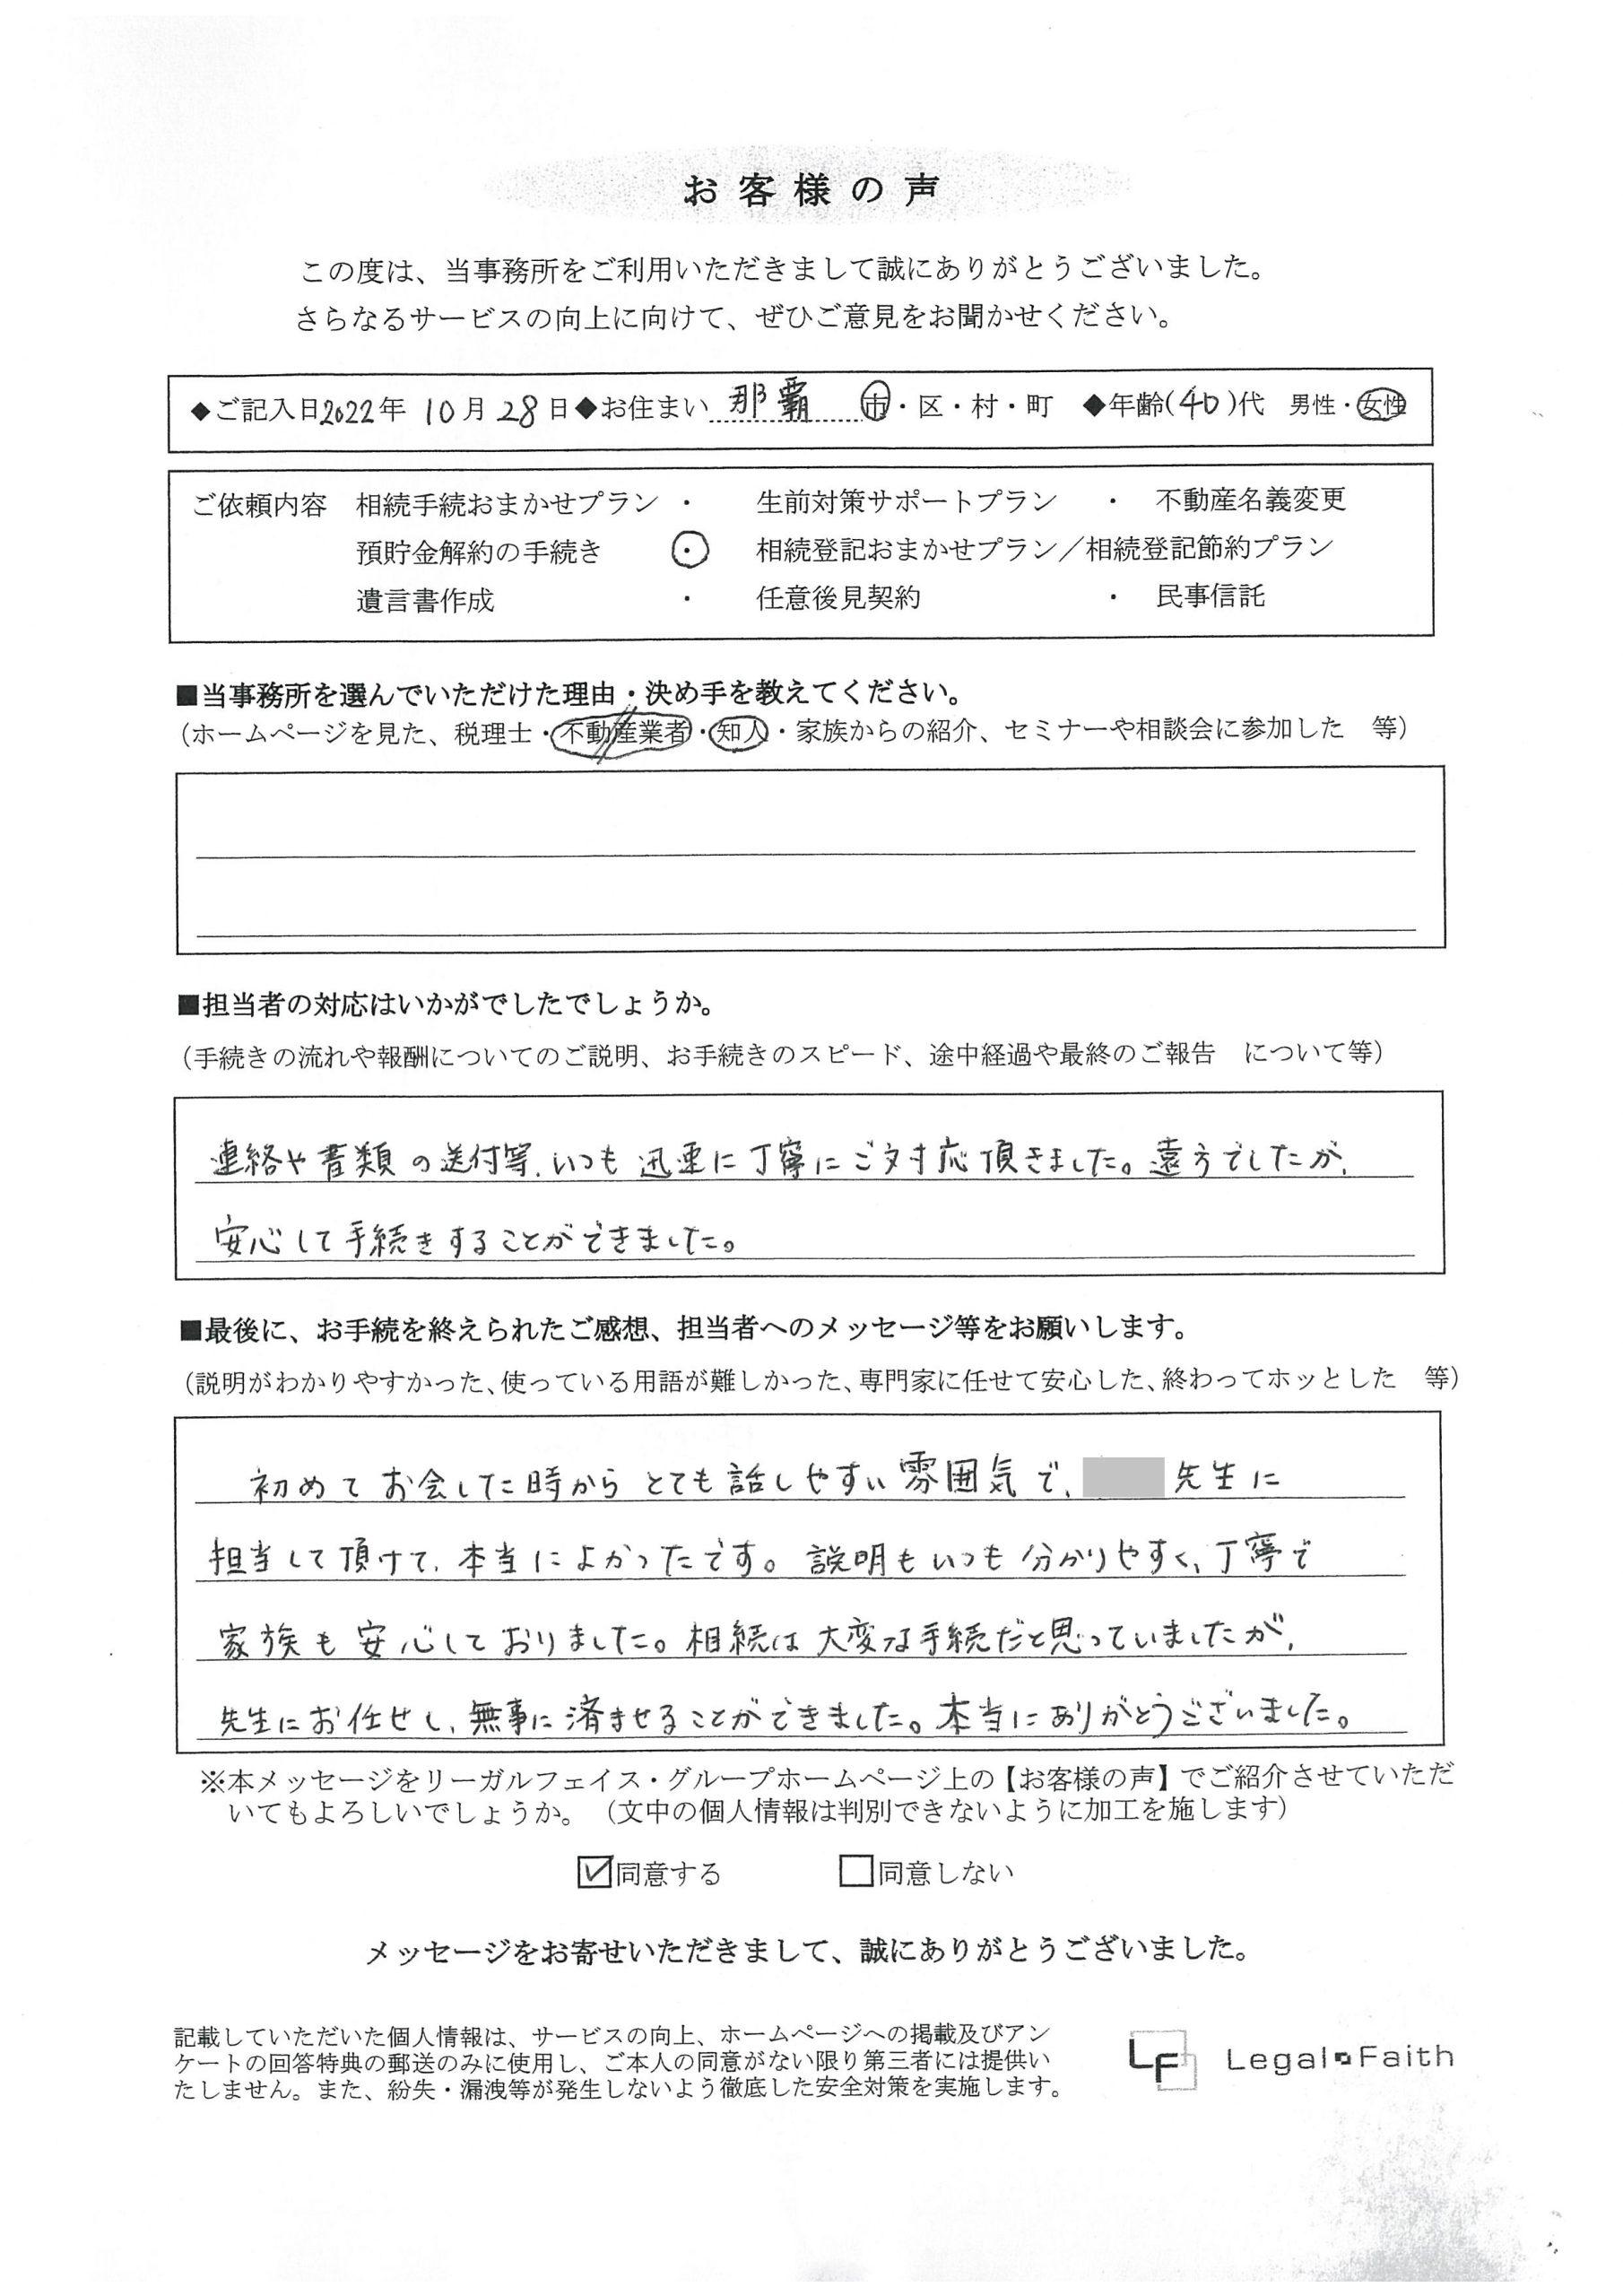 お客様の声
この度は、当事務所をご利用いただきまして誠にありがとうございました。
さらなるサービスの向上に向けて、ぜひご意見をお聞かせください。
◆ご記入日2022年 10月 28日◆お住まい 那覇 市・区・村・町 ◆年齢(40)代 男性・女性
ご依頼内容 相続手続おまかせプラン ・ 生前対策サポートプラン ・ 不動産名義変更
預貯金解約の手続き ・ 相続登記おまかせプラン／相続登記節約プラン
遺言書作成 ・ 任意後見契約 ・ 民事信託
■当事務所を選んでいただけた理由・決め手を教えてください。
（ホームページを見た、税理士・不動産業者・知人・家族からの紹介、セミナーや相談会に参加した 等）
■担当者の対応はいかがでしたでしょうか。
（手続きの流れや報酬についてのご説明、お手続きのスピード、途中経過や最終のご報告 について等）
連絡や書類の送付等、いつも迅速に丁寧にご対応頂きました。遠方でしたが、
安心して手続きすることができました。
■最後に、お手続を終えられたご感想、担当者へのメッセージ等をお願いします。
（説明がわかりやすかった、使っている用語が難しかった、専門家に任せて安心した、終わってホッとした 等）
初めてお会した時からとても話しやすい雰囲気で、 先生に
担当して頂けて、本当によかったです。説明もいつも分かりやすく、丁寧で
家族も安心しておりました。相続は大変な手続だと思っていましたが、
先生にお任せし、無事に済ませることができました。本当にありがとうございました。
※本メッセージをリーガルフェイス・グループホームページ上の【お客様の声】でご紹介させていただ
いてもよろしいでしょうか。（文中の個人情報は判別できないように加工を施します）
☑同意する □同意しない
メッセージをお寄せいただきまして、誠にありがとうございました。
記載していただいた個人情報は、サービスの向上、ホームページへの掲載及びアン
ケートの回答特典の郵送のみに使用し、ご本人の同意がない限り第三者には提供い
たしません。また、紛失・漏洩等が発生しないよう徹底した安全対策を実施します。
LF Legal Faith